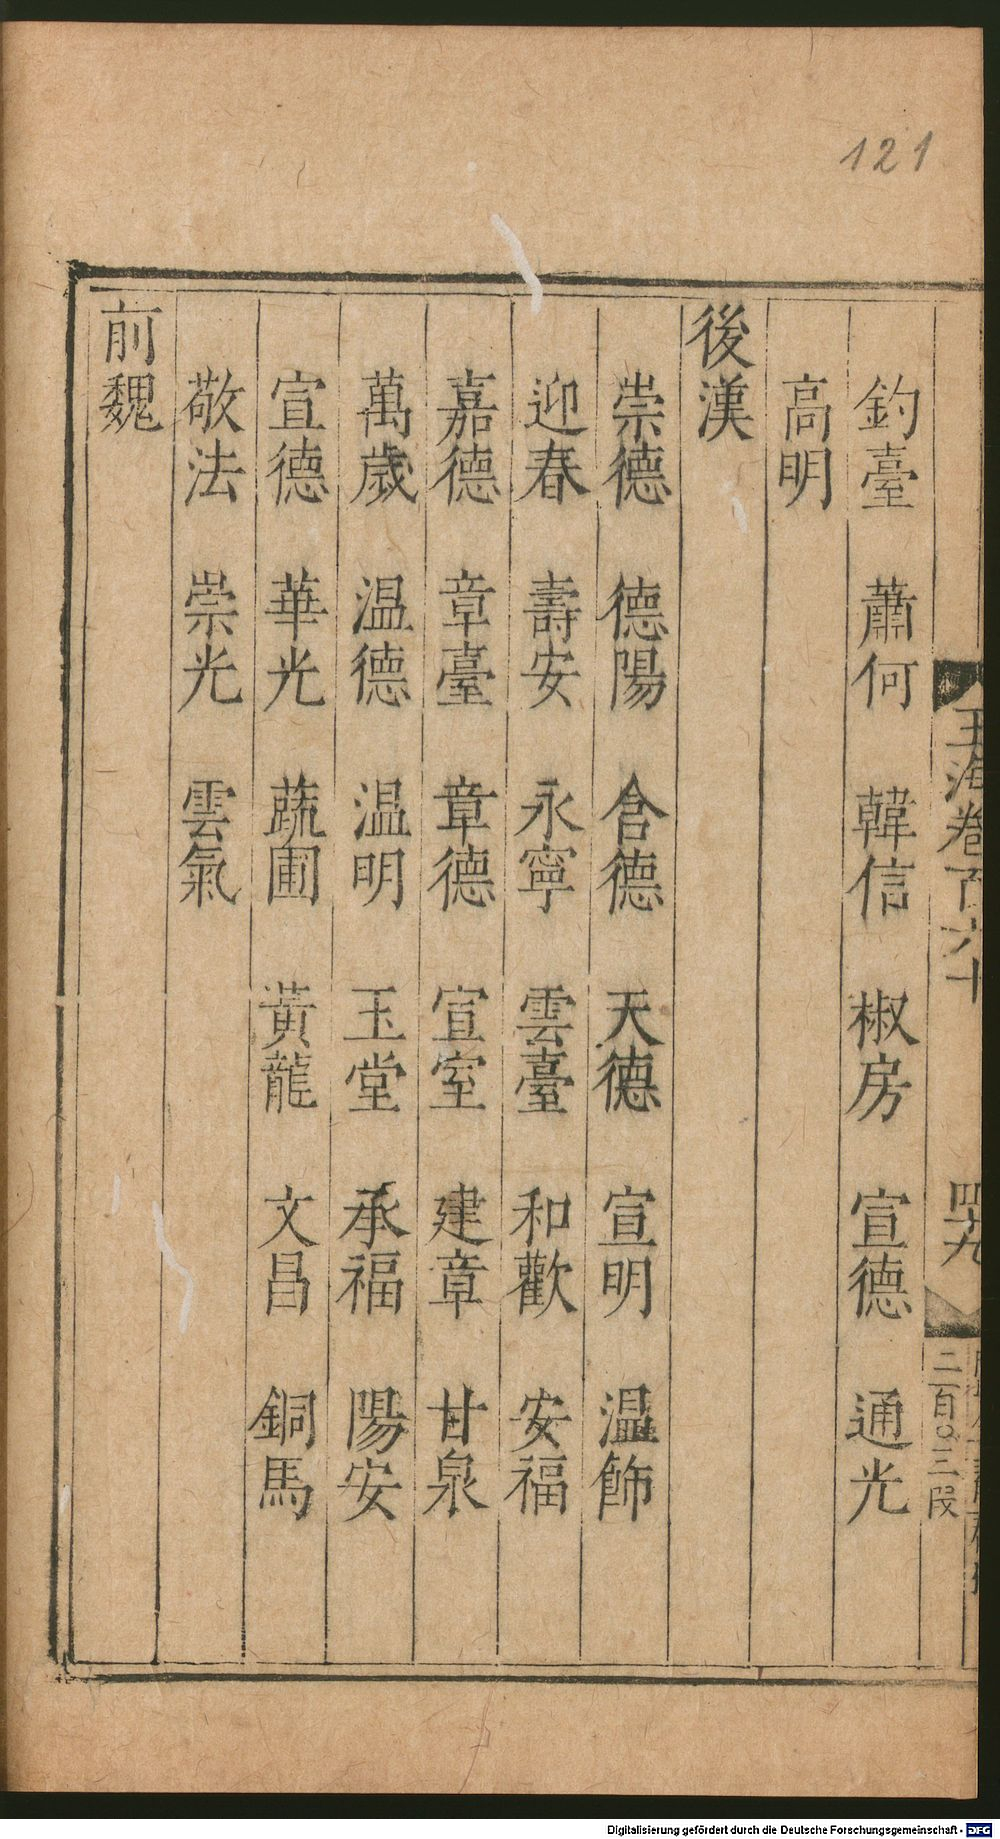 121
玉海卷百六十
四九
二百〇三段
釣臺 蕭何 韓信 椒房 宣德 通光
高明
後漢
崇德 德陽 含德 天德 宣明 温飾
迎春 壽安 永寧 雲臺 和歡 安福
嘉德 章臺 章德 宣室 建章 甘泉
萬歲 温德 温明 玉堂 承福 陽安
宣德 華光 蔬圃 黃龍 文昌 銅馬
敬法 崇光 雲氣
前魏
Digitalisierung gefördert durch die Deutsche Forschungsgemeinschaft - DFG